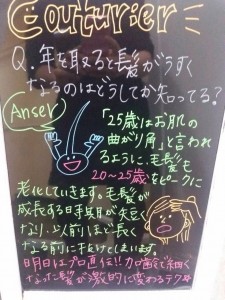 Couturier
Q.年を取ると長髪がうすく
なるのはどうしてか知ってる?
Anser
「25歳はお肌の
曲がり角」と言われ
るように、毛髪も
20〜25歳をピークに
老化していきます。毛髪が
成長する時期が短く
なり、以前ほど長く
なる前に抜けてしまいます。
明日はプロ直伝!!加齢で細く
なった髪が激的に変わるテク☆